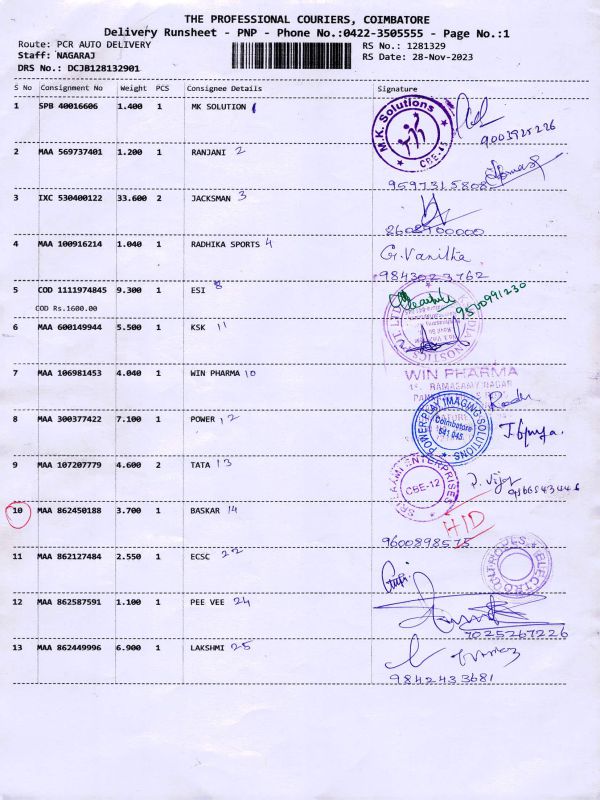 THE PROFESSIONAL COURIERS, COIMBATORE
Delivery Runsheet - PNP - Phone No.:0422-3505555 - Page No.:1
Route: PCR AUTO DELIVERY RS No.: 1281329
Staff: NAGARAJ RS Date: 28-Nov-2023
DRS No.: DCJB128132901
S No Consignment No Weight PCS Consignee Details Signature
1 SPB 40016606 1.400 1 MK SOLUTION 1
M.K. Solutions
CBE-45
2 MAA 569737401 1.200 1 RANJANI 2
3 IXC 530400122 33.600 2 JACKSMAN 3
4 MAA 100916214 1.040 1 RADHIKA SPORTS 4 G.Vanitha
9843023762
5 COD 1111974845 9.300 1 ESI 8
COD Rs.1600.00
9500991230
6 MAA 600149944 5.500 1 KSK 11
7 MAA 106981453 4.040 1 WIN PHARMA 10 WIN PHARMA
RAMASAMY NAGAR
8 MAA 300377422 7.100 1 POWER 12
POWER PLAY IMAGING SOLUTIONS
Coimbatore
641 045
9 MAA 107207779 4.600 2 TATA 13
ENTERPRISES
CBE-12
10 MAA 862450188 3.700 1 BASKAR 14 H/D
9600898575
11 MAA 862127484 2.550 1 ECSC 22
12 MAA 862587591 1.100 1 PEE VEE 24
7025267226
13 MAA 862449996 6.900 1 LAKSHMI 25
9842433681